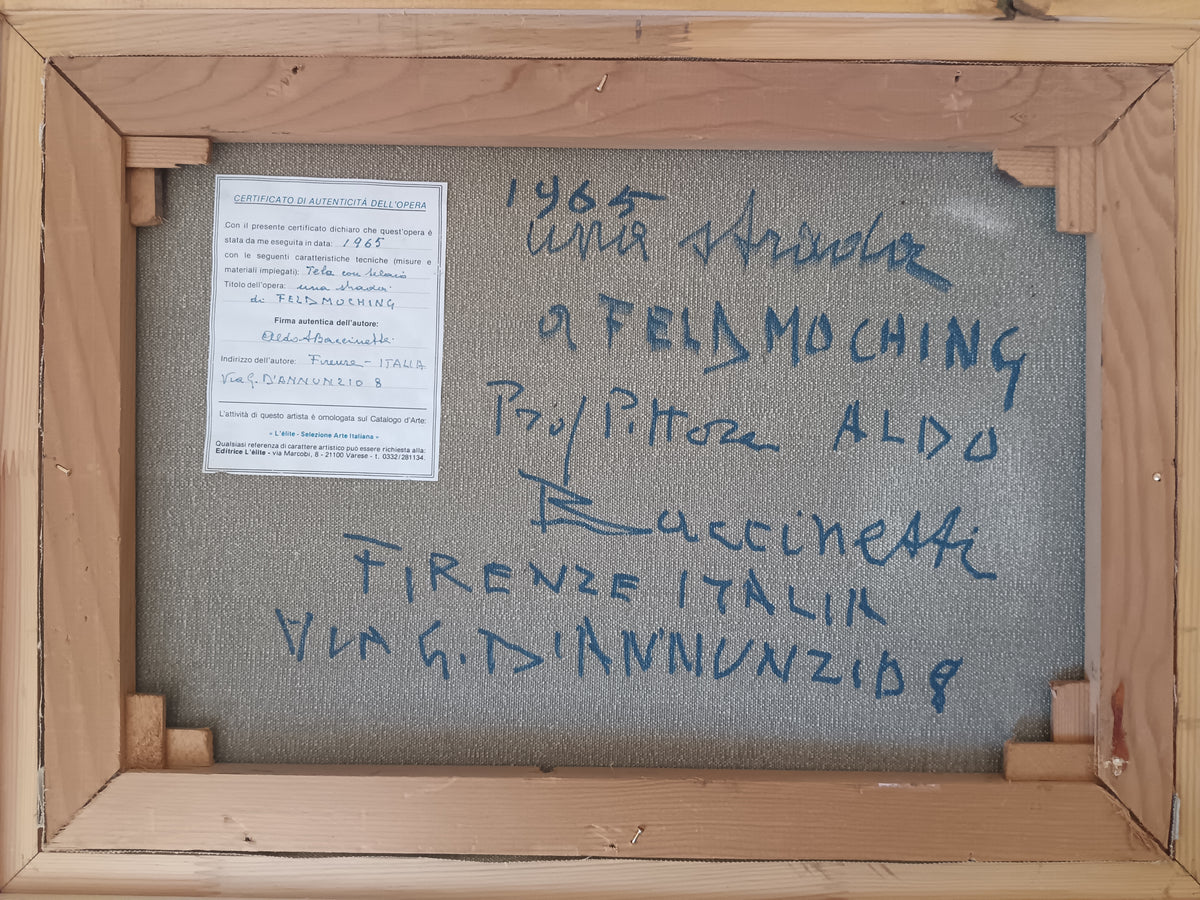 CERTIFICATO DI AUTENTICITÀ DELL'OPERA
Con il presente certificato dichiaro che quest'opera è
stata da me eseguita in data: 1965
con le seguenti caratteristiche tecniche (misure e
materiali impiegati): Tela con telaio
Titolo dell'opera: una strada
di FELDMOCHING
Firma autentica dell'autore:
Aldo A Baccinetti
Indirizzo dell'autore: Firenze - ITALIA
Via G. D'ANNUNZIO 8
L'attività di questo artista è omologata sul Catalogo d'Arte:
« L'élite - Selezione Arte Italiana »
Qualsiasi referenza di carattere artistico può essere richiesta alla:
Editrice L'élite - via Marcobi, 8 - 21100 Varese - t. 0332/281134.
1965
una strada
a FELDMOCHING
Prof Pittore ALDO
Baccinetti
FIRENZE ITALIA
VIA G. D'ANNUNZIO 8